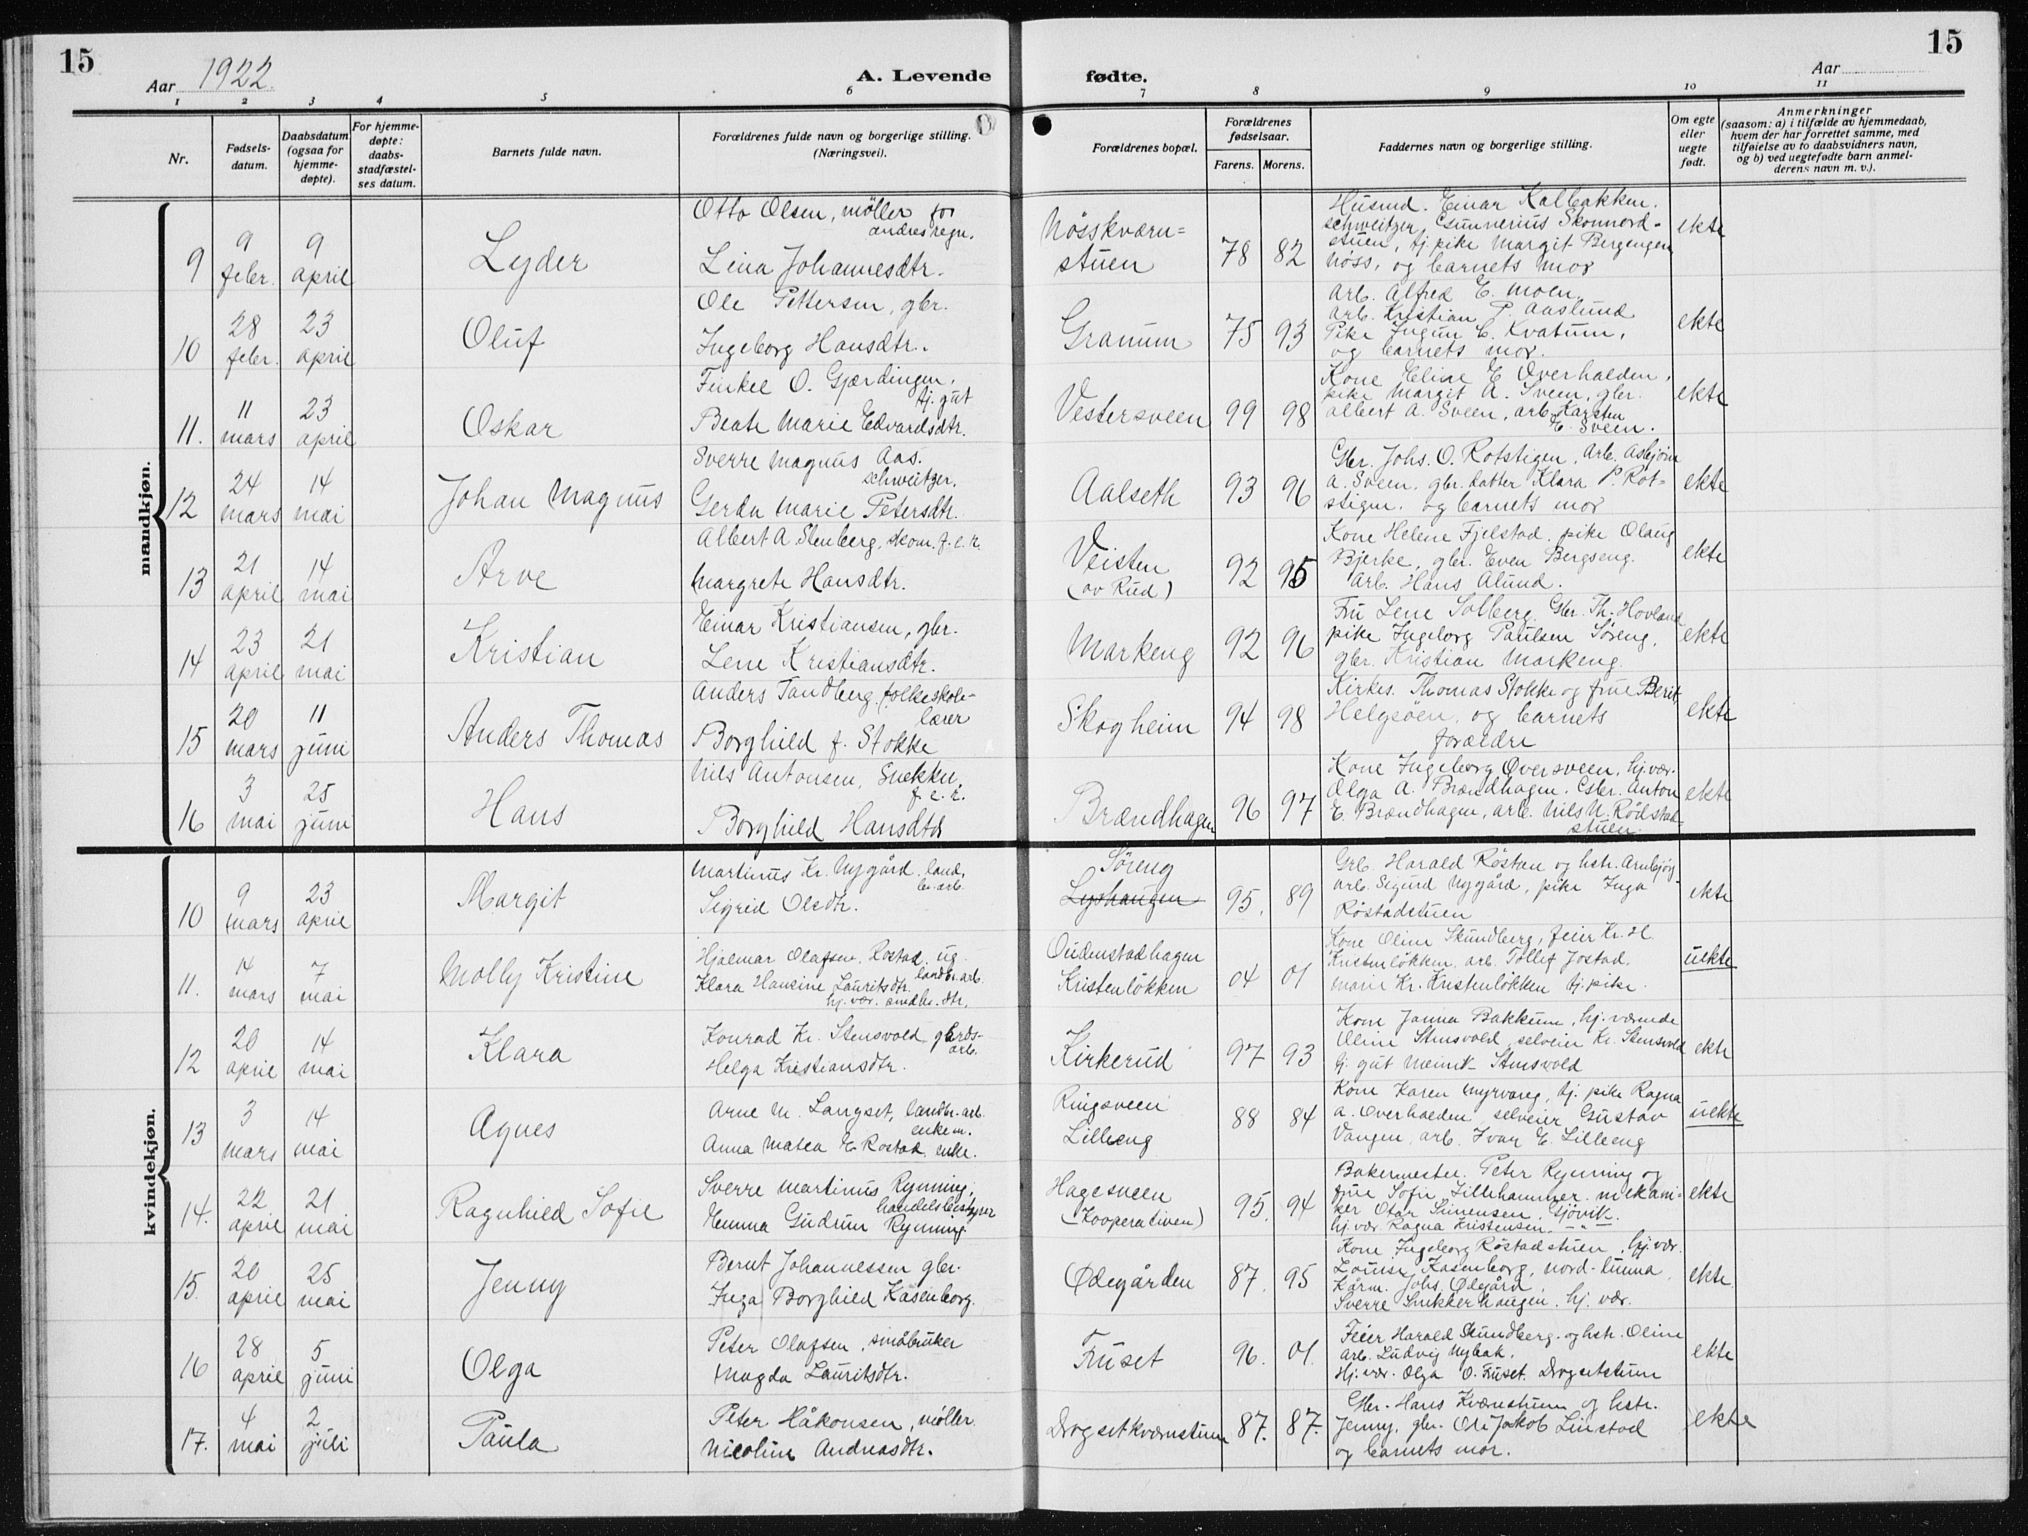 15
15
Aar 1922.
A. Levende
fødte.
Aar
1 2 3 4 5 6 7 8 9 10 11
Nr.
Fødsels-
datum.
Daabsdatum
(ogsaa for
hjemme-
døpte).
For hjemme-
døpte:
daabs-
stadfæstel-
ses datum.
Barnets fulde navn.
Forældrenes fulde navn og borgerlige stilling.
(Næringsvei).
Forældrenes bopæl.
Forældrenes
fødselsaar.
Farens. Morens.
Faddernes navn og borgerlige stilling.
Om egte
eller
uegte
født.
Anmerkninger
(saasom: a) i tilfælde av hjemmedaab,
hvem der har forrettet samme, med
tilføielse av to daabsvidners navn,
og b) ved uegtefødte barn anmel-
derens navn m. v.).
mandkjøn.
9
9 febr.
9 april
Lyder
Otto Olsen, møller for
andres regn.
Lina Johannesdtr.
Nösskværn=
stuen
78 82
Husmd. Einar Kalbakken.
schweitzer Gunnerius Skonnord-
stuen, tj. pike Margit Bergengen
Nöss, og barnets mor
ekte
10
28 febr.
23 april
Oluf
Ole Pettersen, gbr.
Ingeborg Hansdtr.
Granum
75 93
Arb. Alfred E. Moen,
arb. Kristian P. Aaslund
Pike Jugun E. Kvatum,
og barnets mor.
ekte
11.
11 mars
23 april
Oskar
Tinkel O. Gjærdingen,
tj. gut
Beate Marie Edvardsdtr.
Vestersveen
99 98
Kone Elise E. Overhalden,
pike Margit A. Sveen, gbr.
Albert A. Sveen, arb. Karsten
E. Sveen.
ekte
12
24 mars
14 mai
Johan Magnus
Sverre Magnus Aas.
schweitzer.
Gerda Marie Petersdtr.
Aalseth
93 96
Gbr. Johs. O. Rotstigen, Arb. Asbjörn
A. Sveen, gbr. datter Klara P. Rot=
stigen, og barnets mor
ekte
13
21 april
14 mai
Arve
Albert A. Stenberg, skom. f. e. r.
Margrete Hansdtr.
Veisten
(av Rud)
92 95
Kone Helene Fjelstad, pike Olaug
Bjerke, gbr. Even Bergseng.
Arb. Hans Alund.
ekte
14
23 april
21 mai
Kristian
Einar Kristiansen, gbr.
Lene Kristiansdtr.
Markeng
92 96
Fru Lene Solberg, Gbr. Th. Hovland
pike Ingeborg Paulsen Söreng,
gbr. Kristian Markeng.
ekte
15
20 mars
11 juni
Anders Thomas
Anders Tandberg, folkeskole-
lærer
Borghild f. Stokke
Skogheim
94 98
Kirkes. Thomas Stokke og frue Berit,
Helgøen, og barnets
forældre
ekte
16
3 mai
25 juni
Hans
Nils Antonsen, Snekker
f. e. r.
Borghild Hansdtr
Brændhagen
96 97
Kone Ingeborg Øversveen, hj. vær.
Olga A. Brændhagen, Gbr. Anton
E. Brændhagen, arb. Nils N. Rödstad-
stuen.
ekte
kvindekjøn.
10
9 mars
23 april
Margit
Martinus Kr. Nygård, land.
br. arb.
Sigrid Olsdtr.
Söreng
Lyshaugen
95. 89
Grb. Harald Röstan og hstr. Arnbjörg
arb. Sigurd Nygård, pike Inga
Röstadstuen
ekte
11.
14 mars
7 mai
Molly Kristine
Hjalmar Olafsen Rostad, ug.
landbr. arb.
Klara Hansine Lauritsdtr.
hj. vær. småbr. dtr.
Oudenstadhagen
Kristenlökken
04 01
Kone Oline Skundberg, feier Kr. H.
Kristenlökken, arb. Tollef Jostad,
Marie Kr. Kristenlökken tj. pike.
uekte
12
20 april
14 mai
Klara
Konrad Kr. Stensvold, gårds-
arb.
Helga Kristiansdtr.
Kirkerud
97 93
Kone Janna Bakkum, hj. værende
Oline Stensvold, selveier Kr. Stensvold
tj. gut Meinik Stensvold
ekte
13
3 mars
14 mai
Agnes
Arne M. Langset, landbr. arb.
enkem.
Anna Matea E. Rostad, enke.
Ringsveen
Lilleeng
88 84
Kone Karen Myrvang, tj. pike Ragna
A. Overhalden, selveier Gustav
Vangen, arb. Ivar E. Lilleeng
uekte
14.
22 april
21 mai
Ragnhild Sofie
Sverre Martinus Rynning,
handelsbestyrer
Hemma Gudrun Rynning.
Hagesveen
(Kooperativen)
95. 94
Bakermester Peter Rynning og
frue Sofie, Lillehammer, mekani-
ker Otar Simensen, Gjövik.
hj. vær. Ragna Kristensen — " —
ekte
15.
20 april
25 mai
Jenny
Bernt Johannessen gbr.
Inga Borghild Kåsenborg.
Ødegården
87. 95
Kone Ingeborg Röstadstuen, hj. vær.
Louise Kåsenborg, nord-lunna,
Kårm. Johs. Ødegård,
Sverre Snekkerhaugen, hj. vær.
ekte
16
28 april
5 juni
Olga
Peter Olafsen, småbruker
Magda Lauritsdtr.
Fruset
96. 01.
Feier Harald Skundberg, og hstr. Oline
arb. Ludvig Nybak,
Hj. vær. Olga O. Fruset, Drogsetstuen
ekte
17.
4 mai
2 juli
Paula
Peter Håkonsen, möller.
Nicoline Andreasdtr.
Drogsetkværnstuen
87. 87.
Gbr. Hans Kvænstuen og hstr.
Jenny, gbr. Ole Jakob Linstad
og barnets mor.
ekte